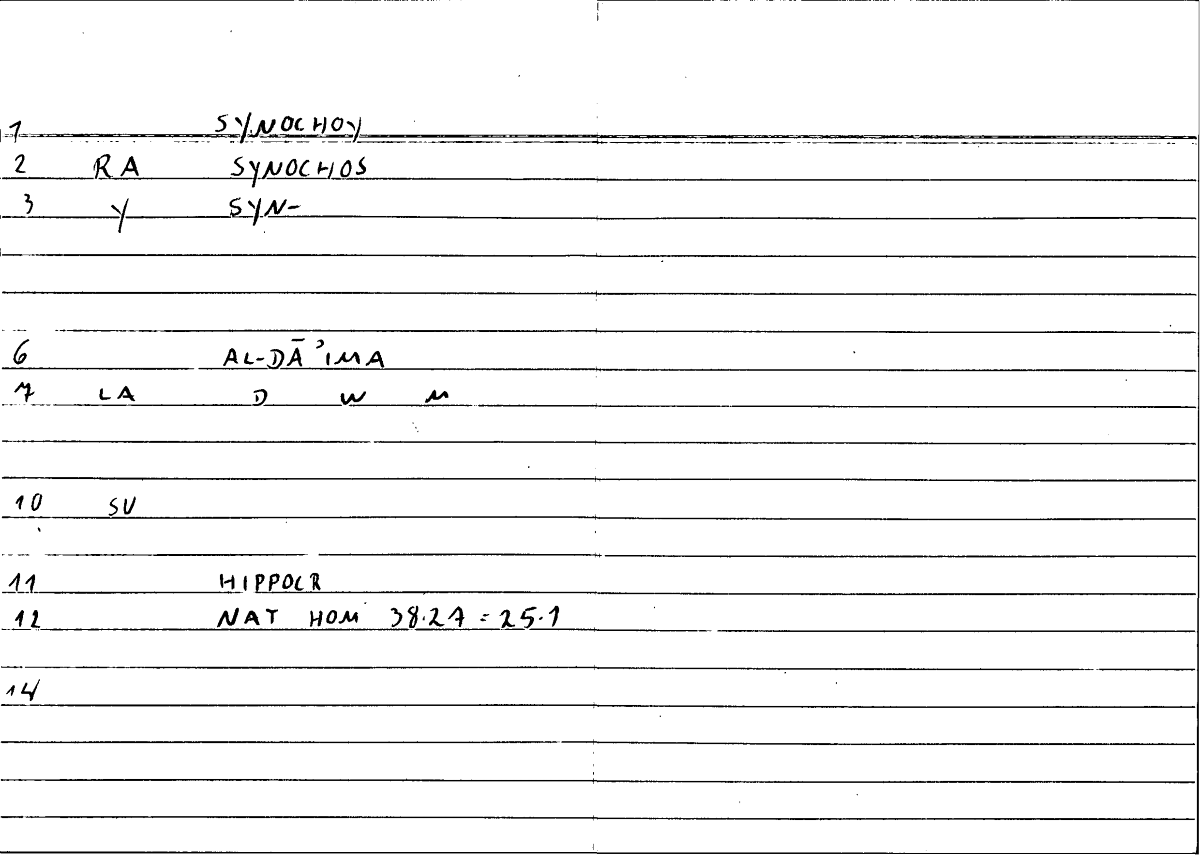 1 SYNOCHOY
2 RA SYNOCHOS
3 Y SYN-
6 AL-DĀʾIMA
7 LA D W M
10 SU
11 HIPPOCR
12 NAT HOM 38.27 = 25.1
14